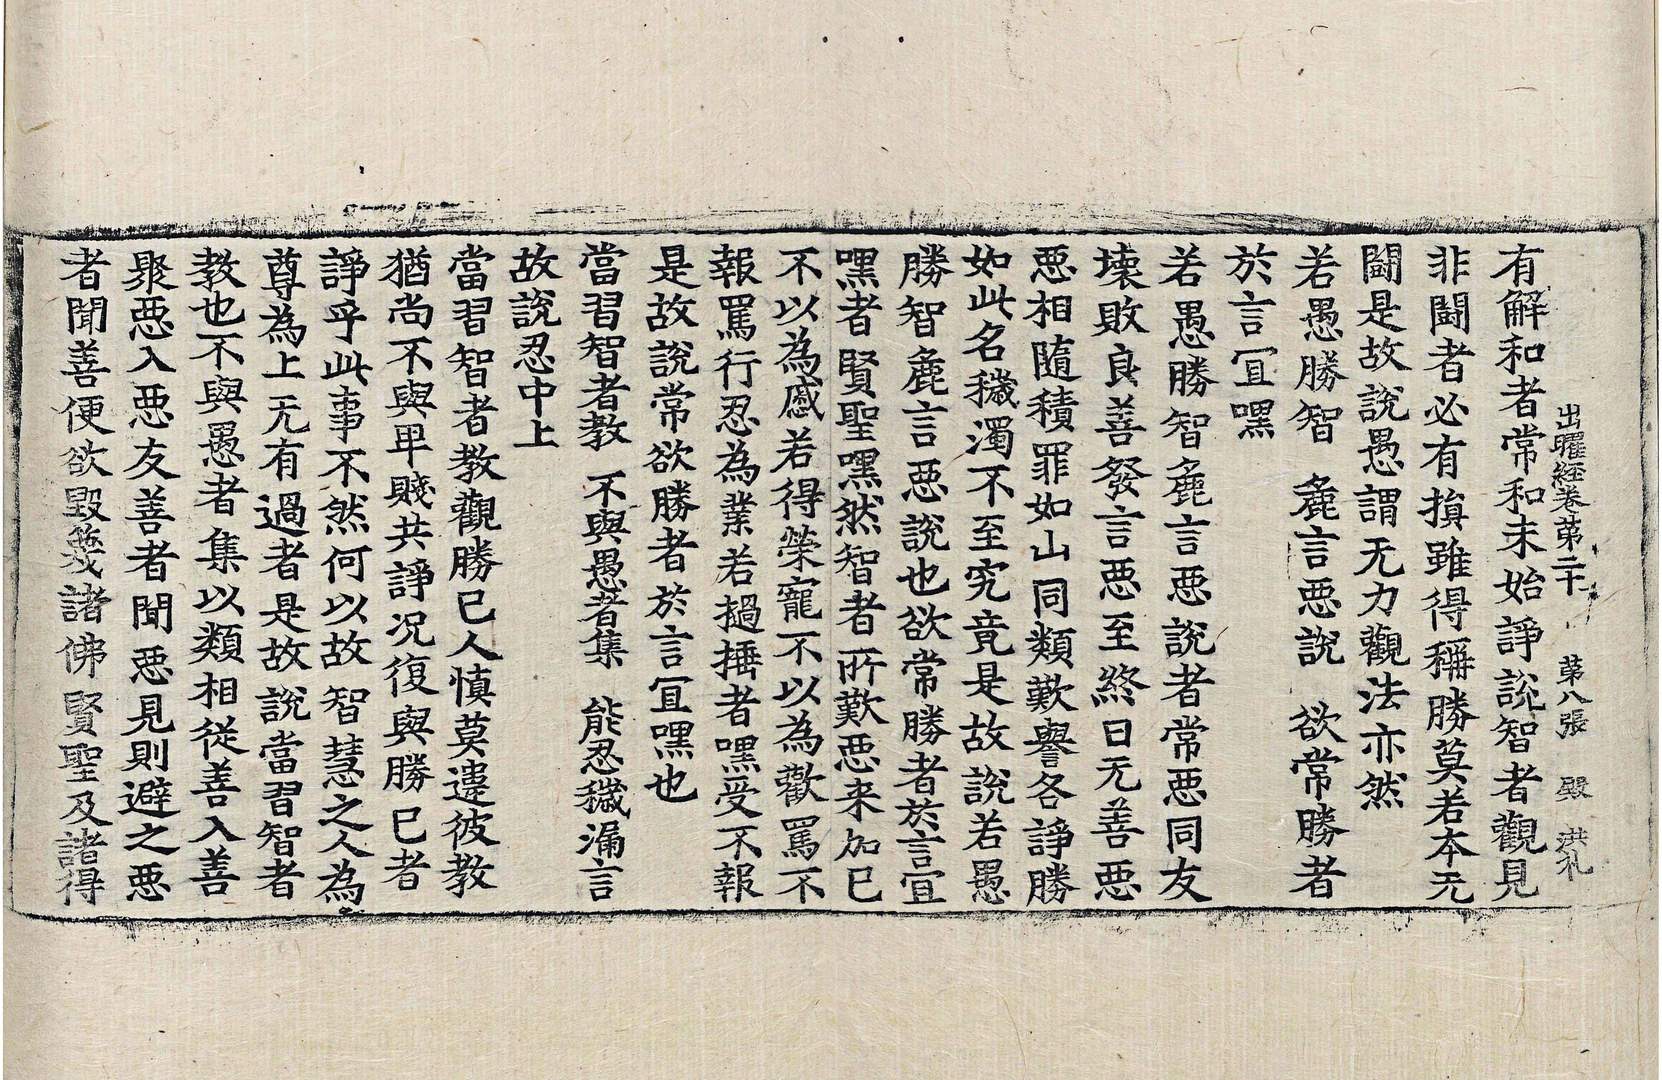 出曜經卷第二十 第八張 殿 洪礼
有解和者常和未始諍說智者觀見
非鬪者必有損雖得稱勝莫若本无
鬪是故說愚謂无力觀法亦然
若愚勝智 麁言惡說 欲常勝者
於言冝嘿
若愚勝智麁言惡說者常惡同友
壞敗良善發言惡至終日无善惡
惡相隨積罪如山同類歎譽各諍勝
如此名穢濁不至究竟是故說若愚
勝智麁言惡說也欲常勝者於言冝
嘿者賢聖嘿然智者所歎惡来加已
不以為慼若得榮寵不以為歡罵不
報罵行忍為業若撾捶者嘿受不報
是故說常欲勝者於言冝嘿也
當習智者教 不與愚者集 能忍穢漏言
故說忍中上
當習智者教觀勝已人慎莫違彼教
猶尚不與卑賤共諍况復與勝已者
諍乎此事不然何以故智慧之人為
尊為上无有過者是故說當習智者
教也不與愚者集以類相従善入善
聚惡入惡友善者聞惡見則避之惡
者聞善便欲毀㡬諸佛賢聖及諸得